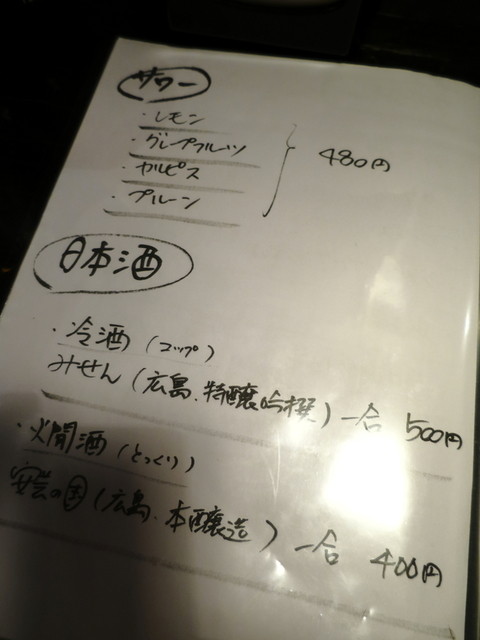 サワー
・レモン
・グレープフルーツ
・カルピス
・プルーン
480円
日本酒
・冷酒（コップ）
みせん（広島、特醸吟撰）一合 500円
・火閒酒（とっくり）
安芸の国（広島、本醸造）一合 400円